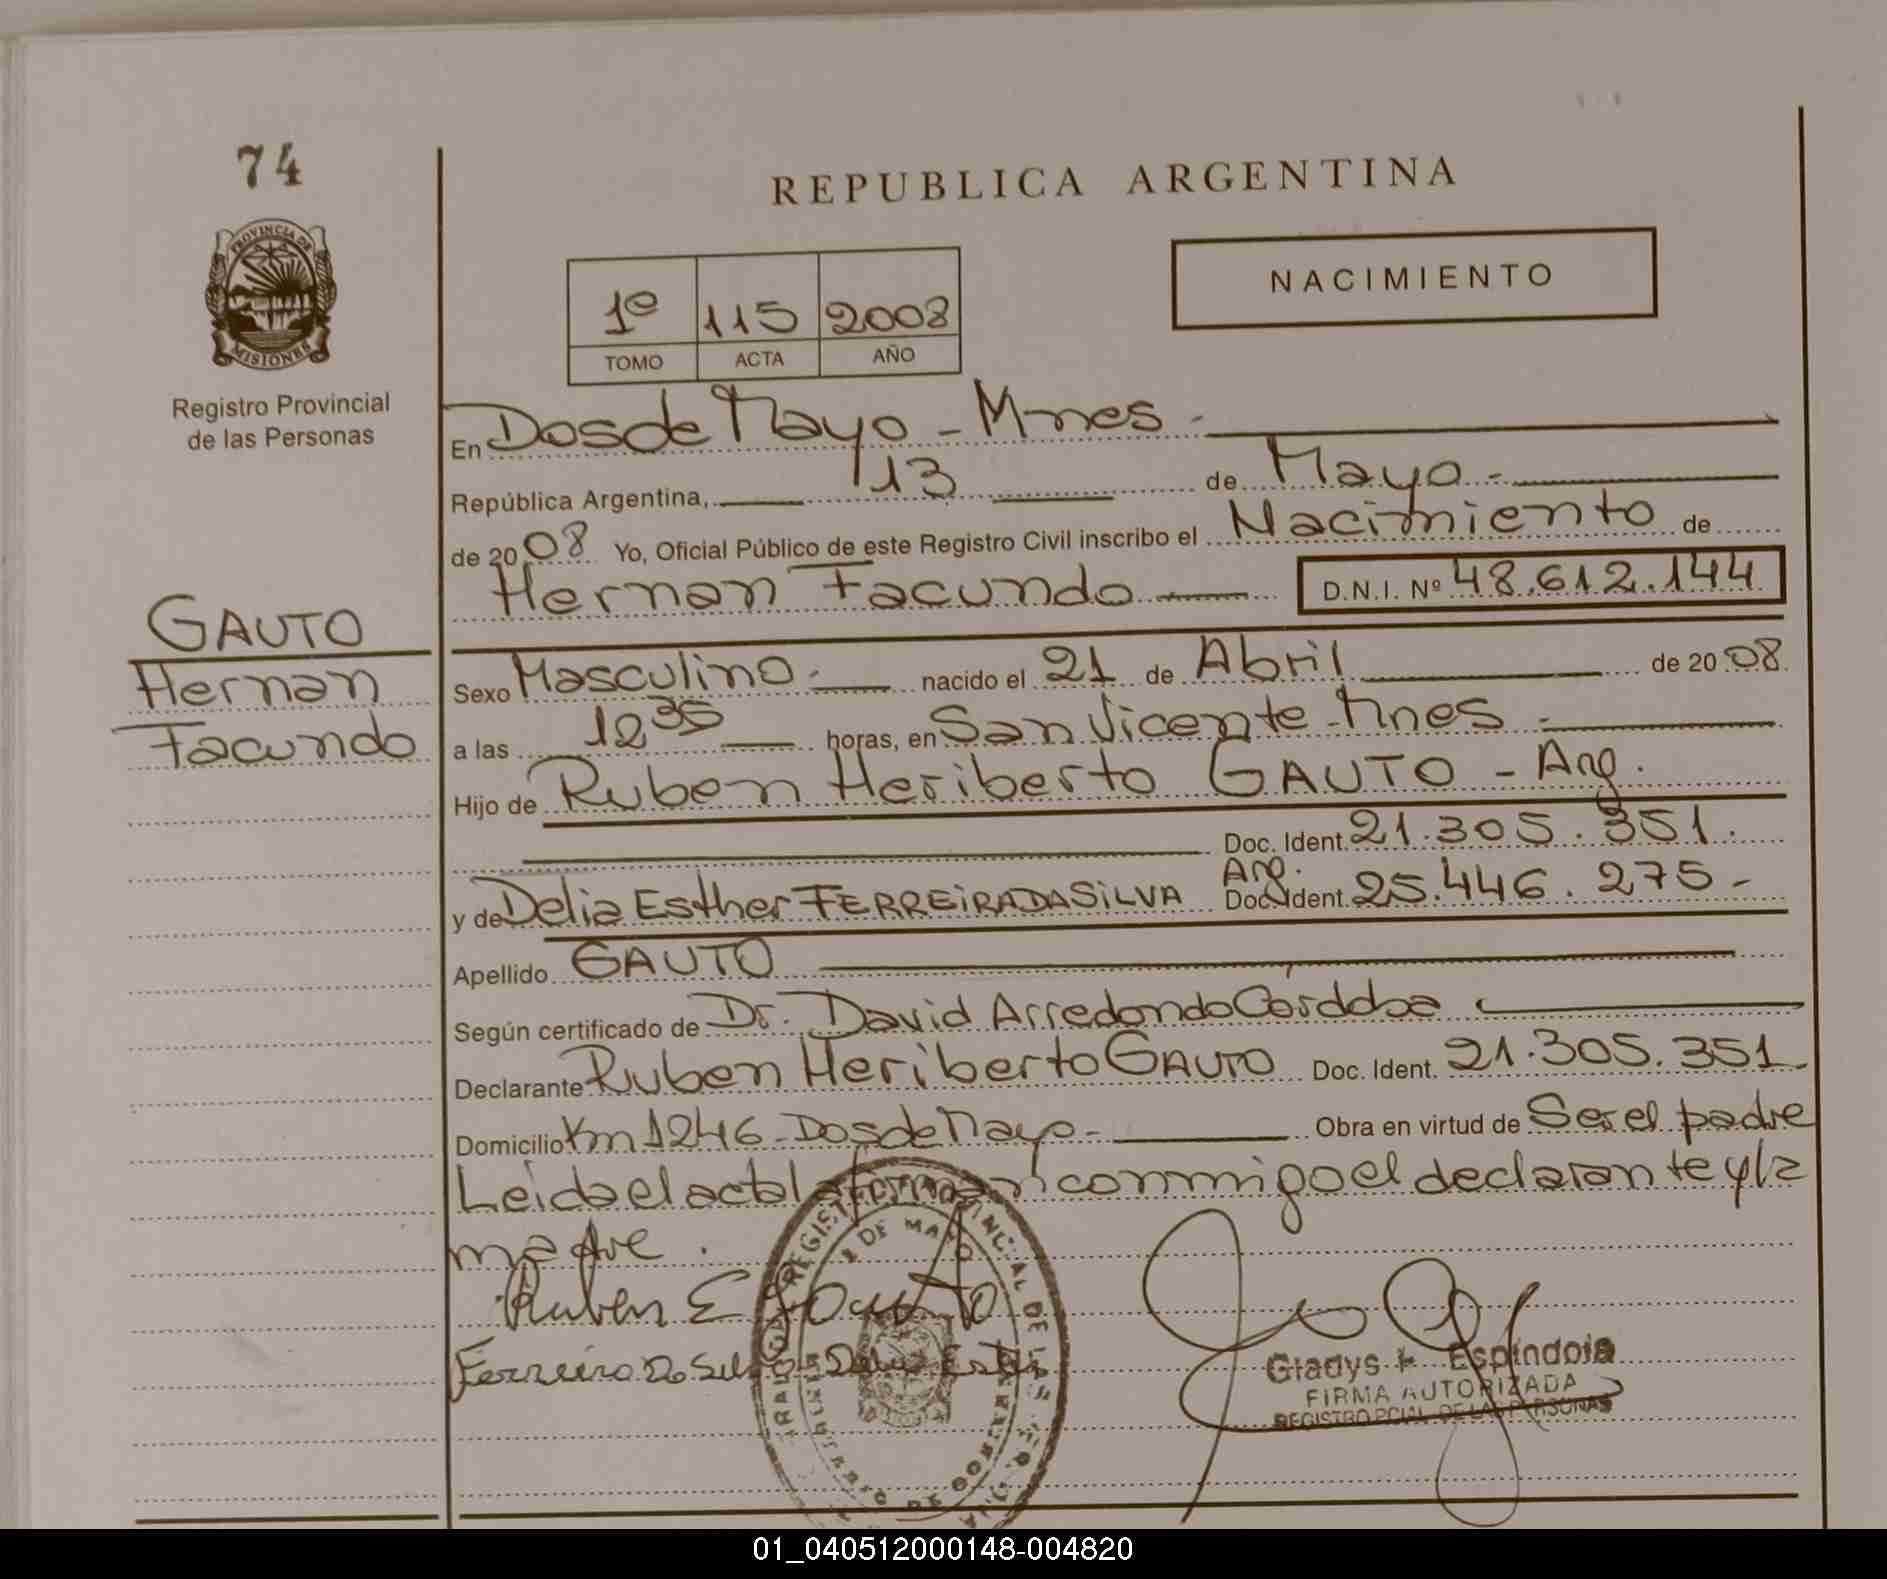 74
REPUBLICA ARGENTINA
PROVINCIA DE
MISIONES
Registro Provincial
de las Personas
NACIMIENTO
1º 115 2008
TOMO ACTA AÑO
En Dos de Mayo - Mnes -
República Argentina, 13 de Mayo.-
de 20 08 Yo, Oficial Público de este Registro Civil inscribo el Nacimiento de
Hernan Facundo D.N.I. Nº 48.612.144
GAUTO
Hernan
Facundo
Sexo Masculino.- nacido el 21 de Abril de 20 08.
a las 12 35 horas, en San Vicente - Mnes -
Hijo de Ruben Heriberto GAUTO - Arg.
Doc. Ident. 21.305.351.
y de Delia Esther FERREIRA DA SILVA Arg. Doc. Ident. 25.446.275-
Apellido GAUTO
Según certificado de Dr. David Arredondo Córdoba
Declarante Ruben Heriberto GAUTO Doc. Ident. 21.305.351
Domicilio Km 1246 - Dos de Mayo - Obra en virtud de Ser el padre
Leida el acta la firman conmigo el declarante y la
madre.
Ruben E Gauto
Gladys Espindola
FIRMA AUTORIZADA
REGISTRO PCIAL. DE LAS PERSONAS
REGISTRO PROVINCIAL DE LAS
2 DE MAYO
MINISTERIO DE GOBIERNO
01_040512000148-004820